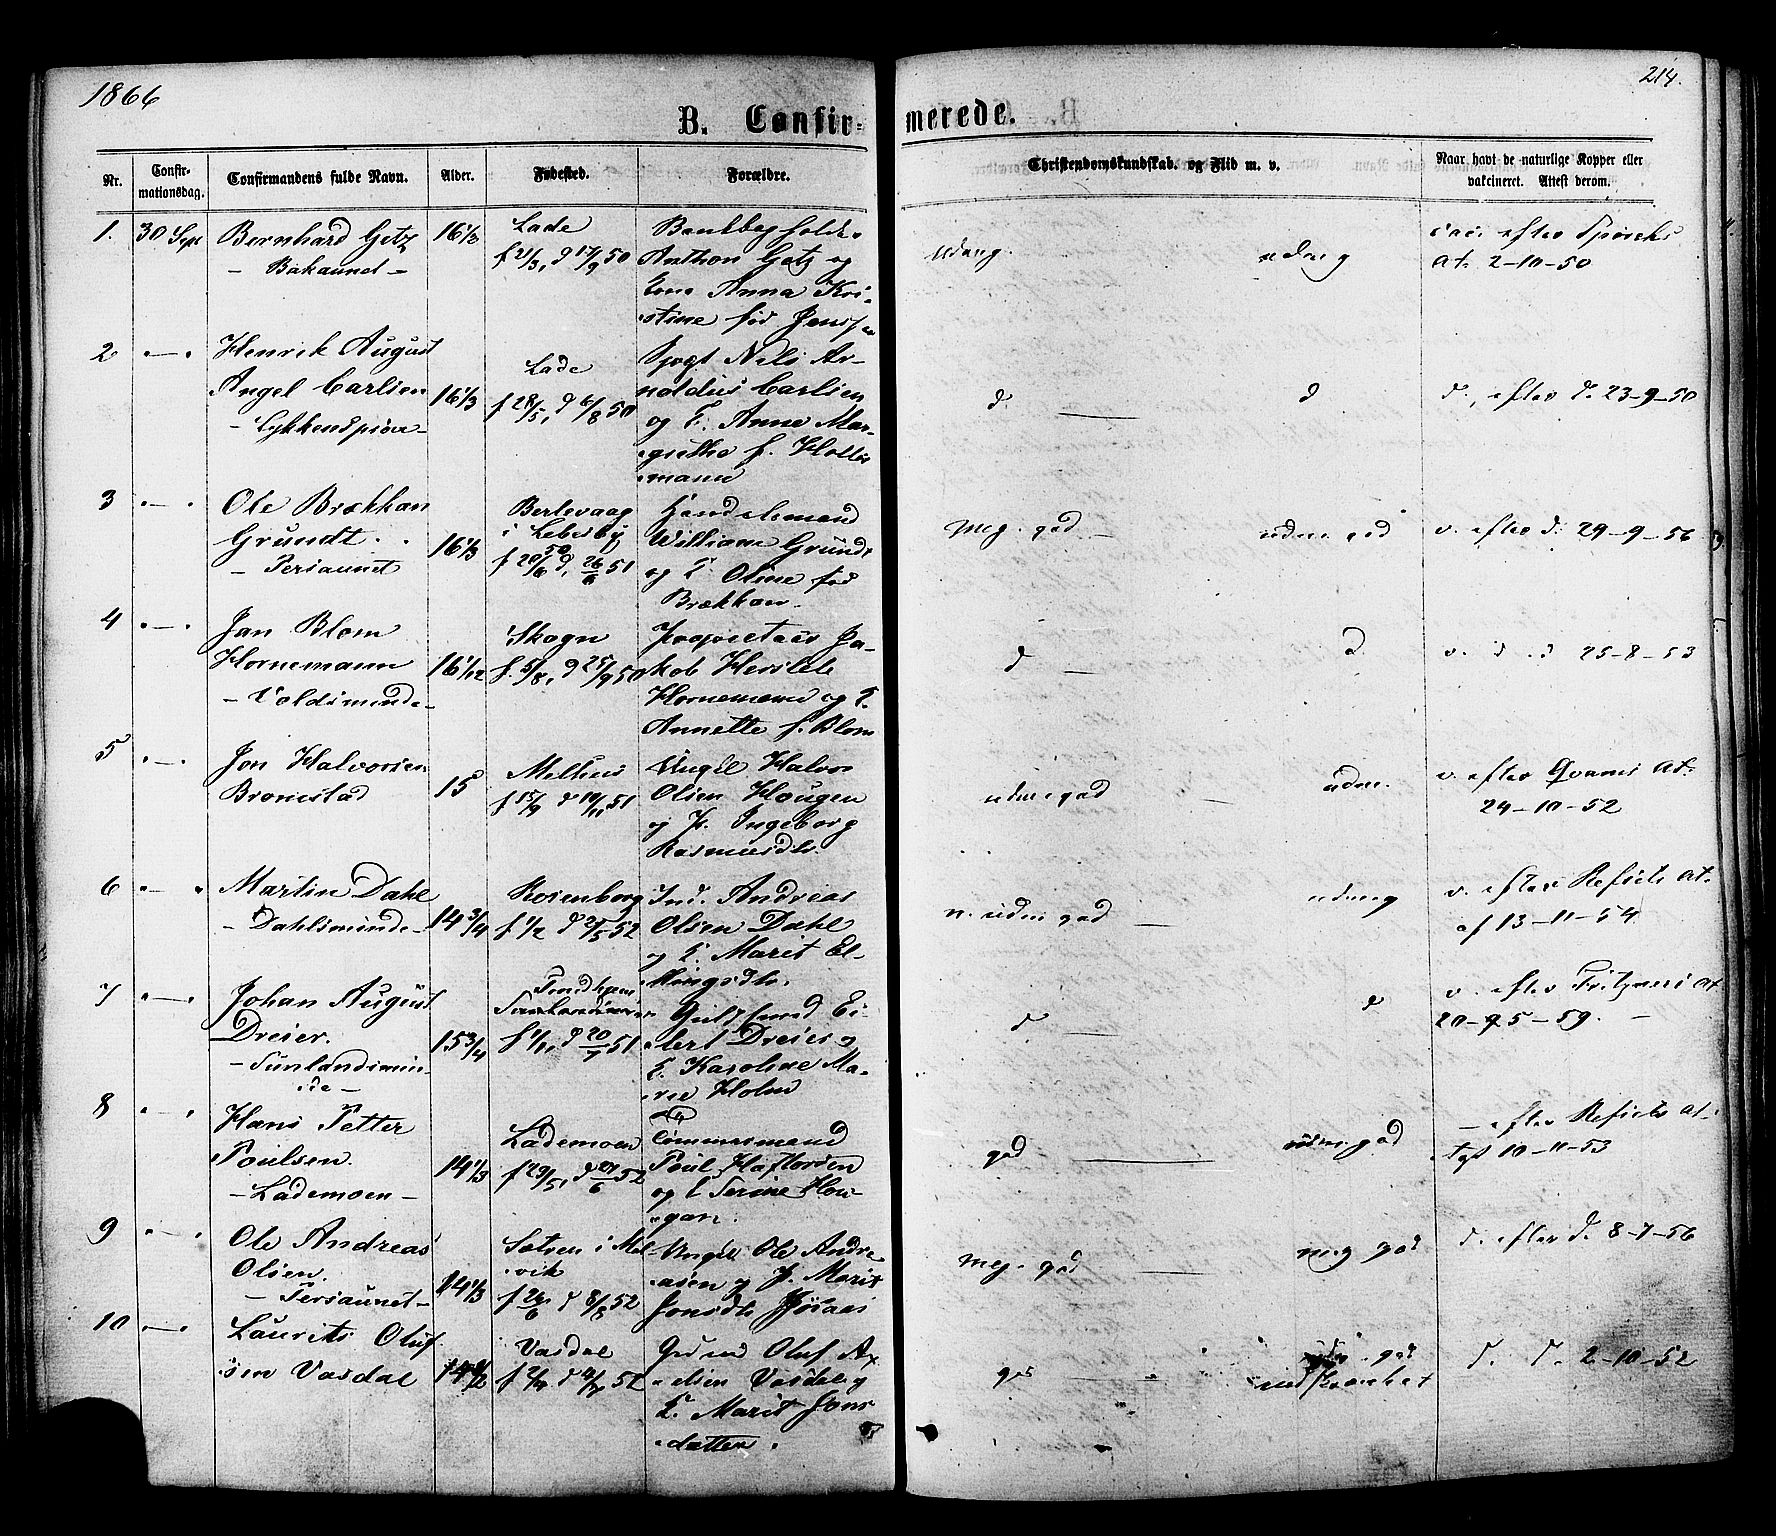 1866
214.
B. Confir-
merede.
Nr.
Confir-
mationsdag.
Confirmandens fulde Navn.
Alder.
Fødested.
Forældre.
Christendomskundskab. og Flid m. v.
Naar havt de naturlige Kopper eller
vakcineret. Attest derom.
1.
30 Sept
Bernhard Getz
- Bakaunet -
16 1/3
Lade
f 21/5, d 17/9 50
Anthon Getz og
Anna Kri-
stine fød Jenssen
udmg.
udmg
vac. efter
At. 2-10-50
2
Henrik August
Angel Carlsen
- Lykkensprøve -
16 1/3
Lade
f 28/5, d 6/8 50
Fogt Nils Ar-
noldus Carlsen
og E. Anne Mar-
grethe f. Holter-
mann
d.
d
d., efter d. 23-9-50
3
Ole Brækkan
Grundt.
- Persaunet
16 1/3
Berlevaag
i Lebesby
50
f 20/6 d, 26/6 51
Handelsmand
William Grundt
og E. Oline fød
Brækkan.
Meg. god
udm. god
v. efter d: 29-9-56
4
Jan Blom
Hornemann
- Voldsminde -
16 1/12
Skogn
f. 5/8, d 25/9 50
Proprietair Ja-
kob Hersleb
Hornemann og E.
Annette f. Blom
d
d
v. d. d 25-8-53
5
Jon Halvorsen
Bromstad
15
Melhus
f 15/9 d 10/11 51
Ungk. Halvor
Olsen Hougen
og P. Ingeborg
Rasmusdtr.
udm. god
udm.
v. efter Qvams At.
24-10-52
6
Martin Dahl
- Dahlsminde -
14 3/4
Rosenborg
f 1/2 d 2/5 52
Ind. Andreas
Olsen Dahl
og E. Marit El-
lingsdtr.
n. udm god
udmg
v. efter Refsets At.
af 13-11-54
7
Johan August
Dreier.
- Sunlandsmin-
de -
15 3/4
Trondhjem
f 1/1, d 20/7 51
Guldsmed Ei-
lert Dreier og
E. Karoline Ma-
rie Holm
d
d
v. efter Fritzners At
20-5-59.
8
Hans Petter
Poulsen.
- Lademoen -
14 1/3
Lademoen
f 29/5, d 27/6 52
Tømmermand
Poul Haftorsen
og E Serine Hou-
gan.
god
udm. god
- efter Refsets At.
Atgt 10-11-53
9
Ole Andreas
Olsen.
- Persaunet -
14 1/3
Sætren i Mal-
vik
f 24/6 d 8/8 52
Ungk. Ole Andre-
asen og P. Marit
Jonsdtr
Meg. god
meg god
d. efter d. 8-7-56
10
Laurits Oluf-
sen Vasdal
14 1/2
Vasdal
f 2/4 d 4/7 52
Oluf Ax-
elsen Vasdal og
E. Marit Jons-
datter.
god
god
d. d. 2-10-52